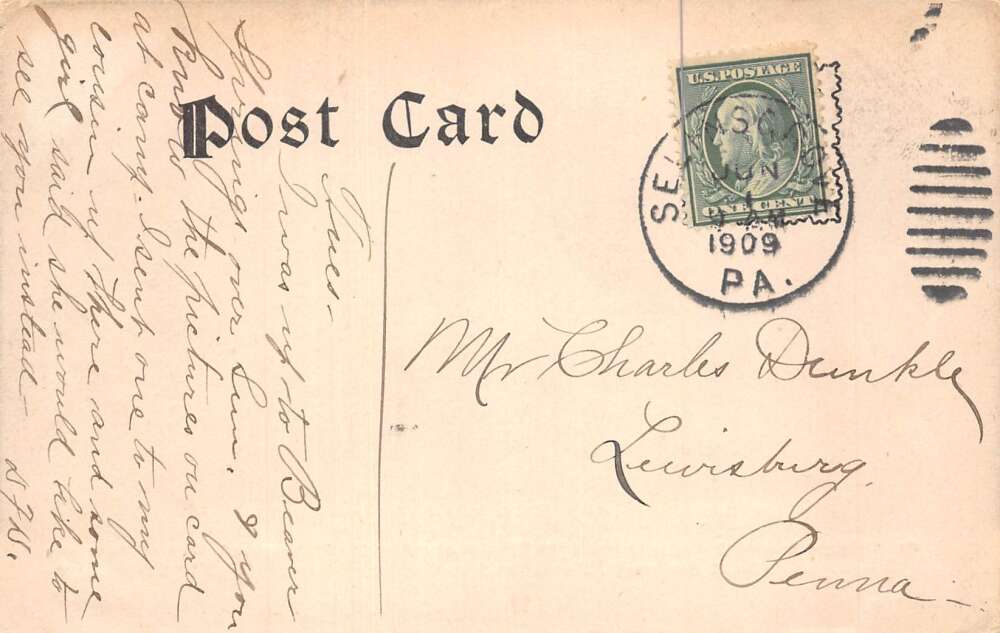 Post Card
U.S. POSTAGE
ONE CENT
SELINSGROVE
JUN
1
9 AM
1909
PA.
Tues-
I was up to Beaver
Springs over Sun. & you
know the pictures on card
at camp- I sent one to my
cousin up there and some
girl said she would like to
see you instead-
Mr Charles Dunkle
Lewisburg
Penna-